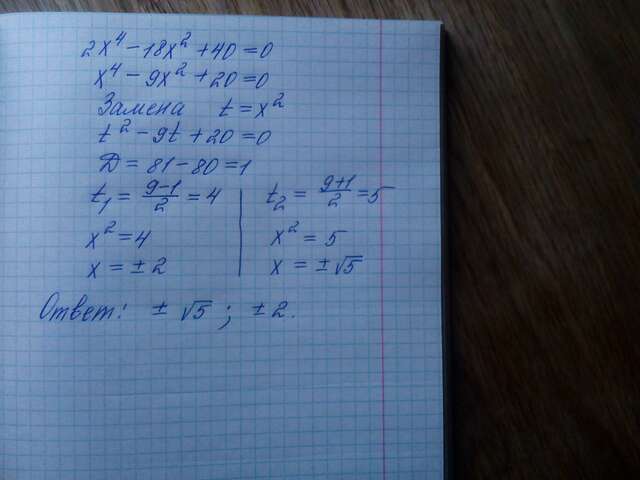 2x⁴ − 18x² + 40 = 0
x⁴ − 9x² + 20 = 0
Замена t = x²
t² − 9t + 20 = 0
D = 81 − 80 = 1
t₁ = (9−1)/2 = 4 | t₂ = (9+1)/2 = 5
x² = 4 | x² = 5
x = ± 2 | x = ± √5
Ответ: ± √5 ; ± 2.